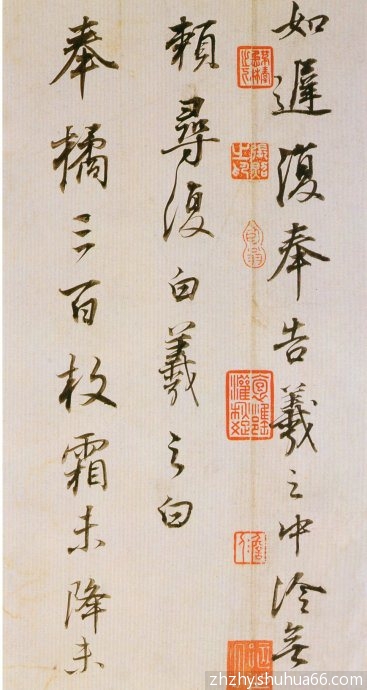 如遲復奉告羲之中冷無
賴尋復白羲之白
奉橘三百枚霜未降未
zhzhyshuhua66.com